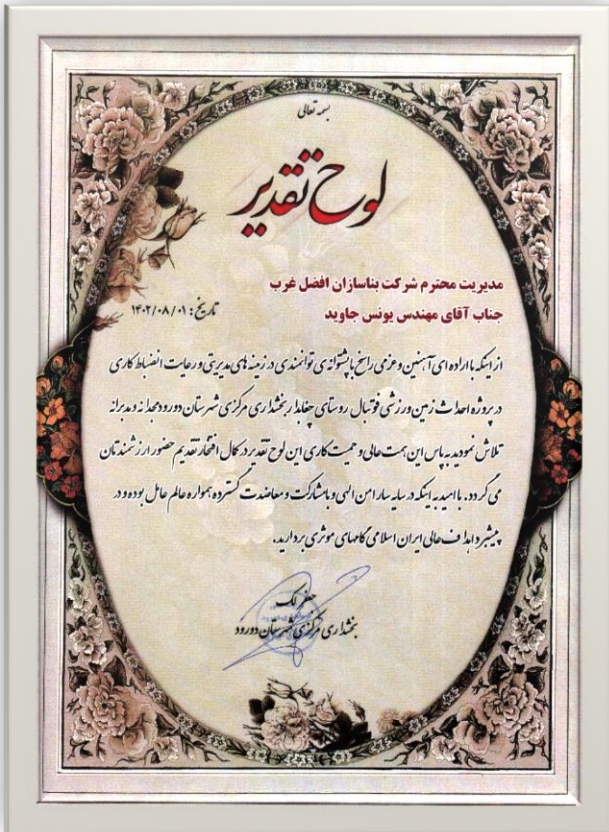 بسمه تعالی
لوح تقدیر
مدیریت محترم شرکت بناسازان افضل غرب
جناب آقای مهندس یونس جاوید
تاریخ: ۱۴۰۲/۰۸/۰۱
از اینکه با اراده ای آهنین و عزمی راسخ با پشتوانه ی توانمندی در زمینه های مدیریتی و رعایت انضباط کاری
در پروژه احداث زمین ورزشی فوتبال روستای بخشداری مرکزی شهرستان دورود مجدانه و مدبرانه
تلاش نمودید به پاس این همت عالی و حمیت کاری این لوح تقدیر در کمال افتخار تقدیم حضور ارزشمندتان
می گردد. با امید به اینکه در سایه سار امن الهی و با مشارکت و معاضدت گسترده همواره عالم عامل بوده و در
پیشبرد اهداف عالی ایران اسلامی گامهای موثری بردارید.
جعفر لک
بخشداری مرکزی شهرستان دورود